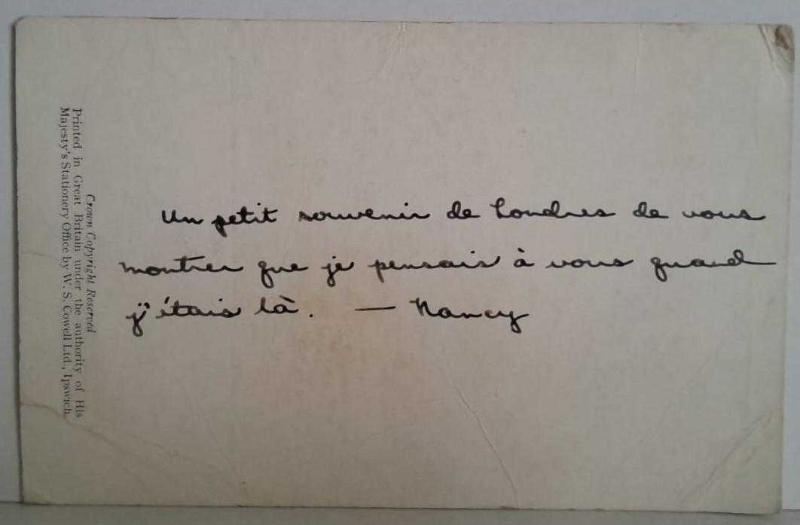 Un petit souvenir de Londres de vous
montrer que je pensais à vous quand
j'étais là. — Nancy
Crown Copyright Reserved
Printed in Great Britain under the authority of His
Majesty's Stationery Office by W. S. Cowell Ltd., Ipswich.